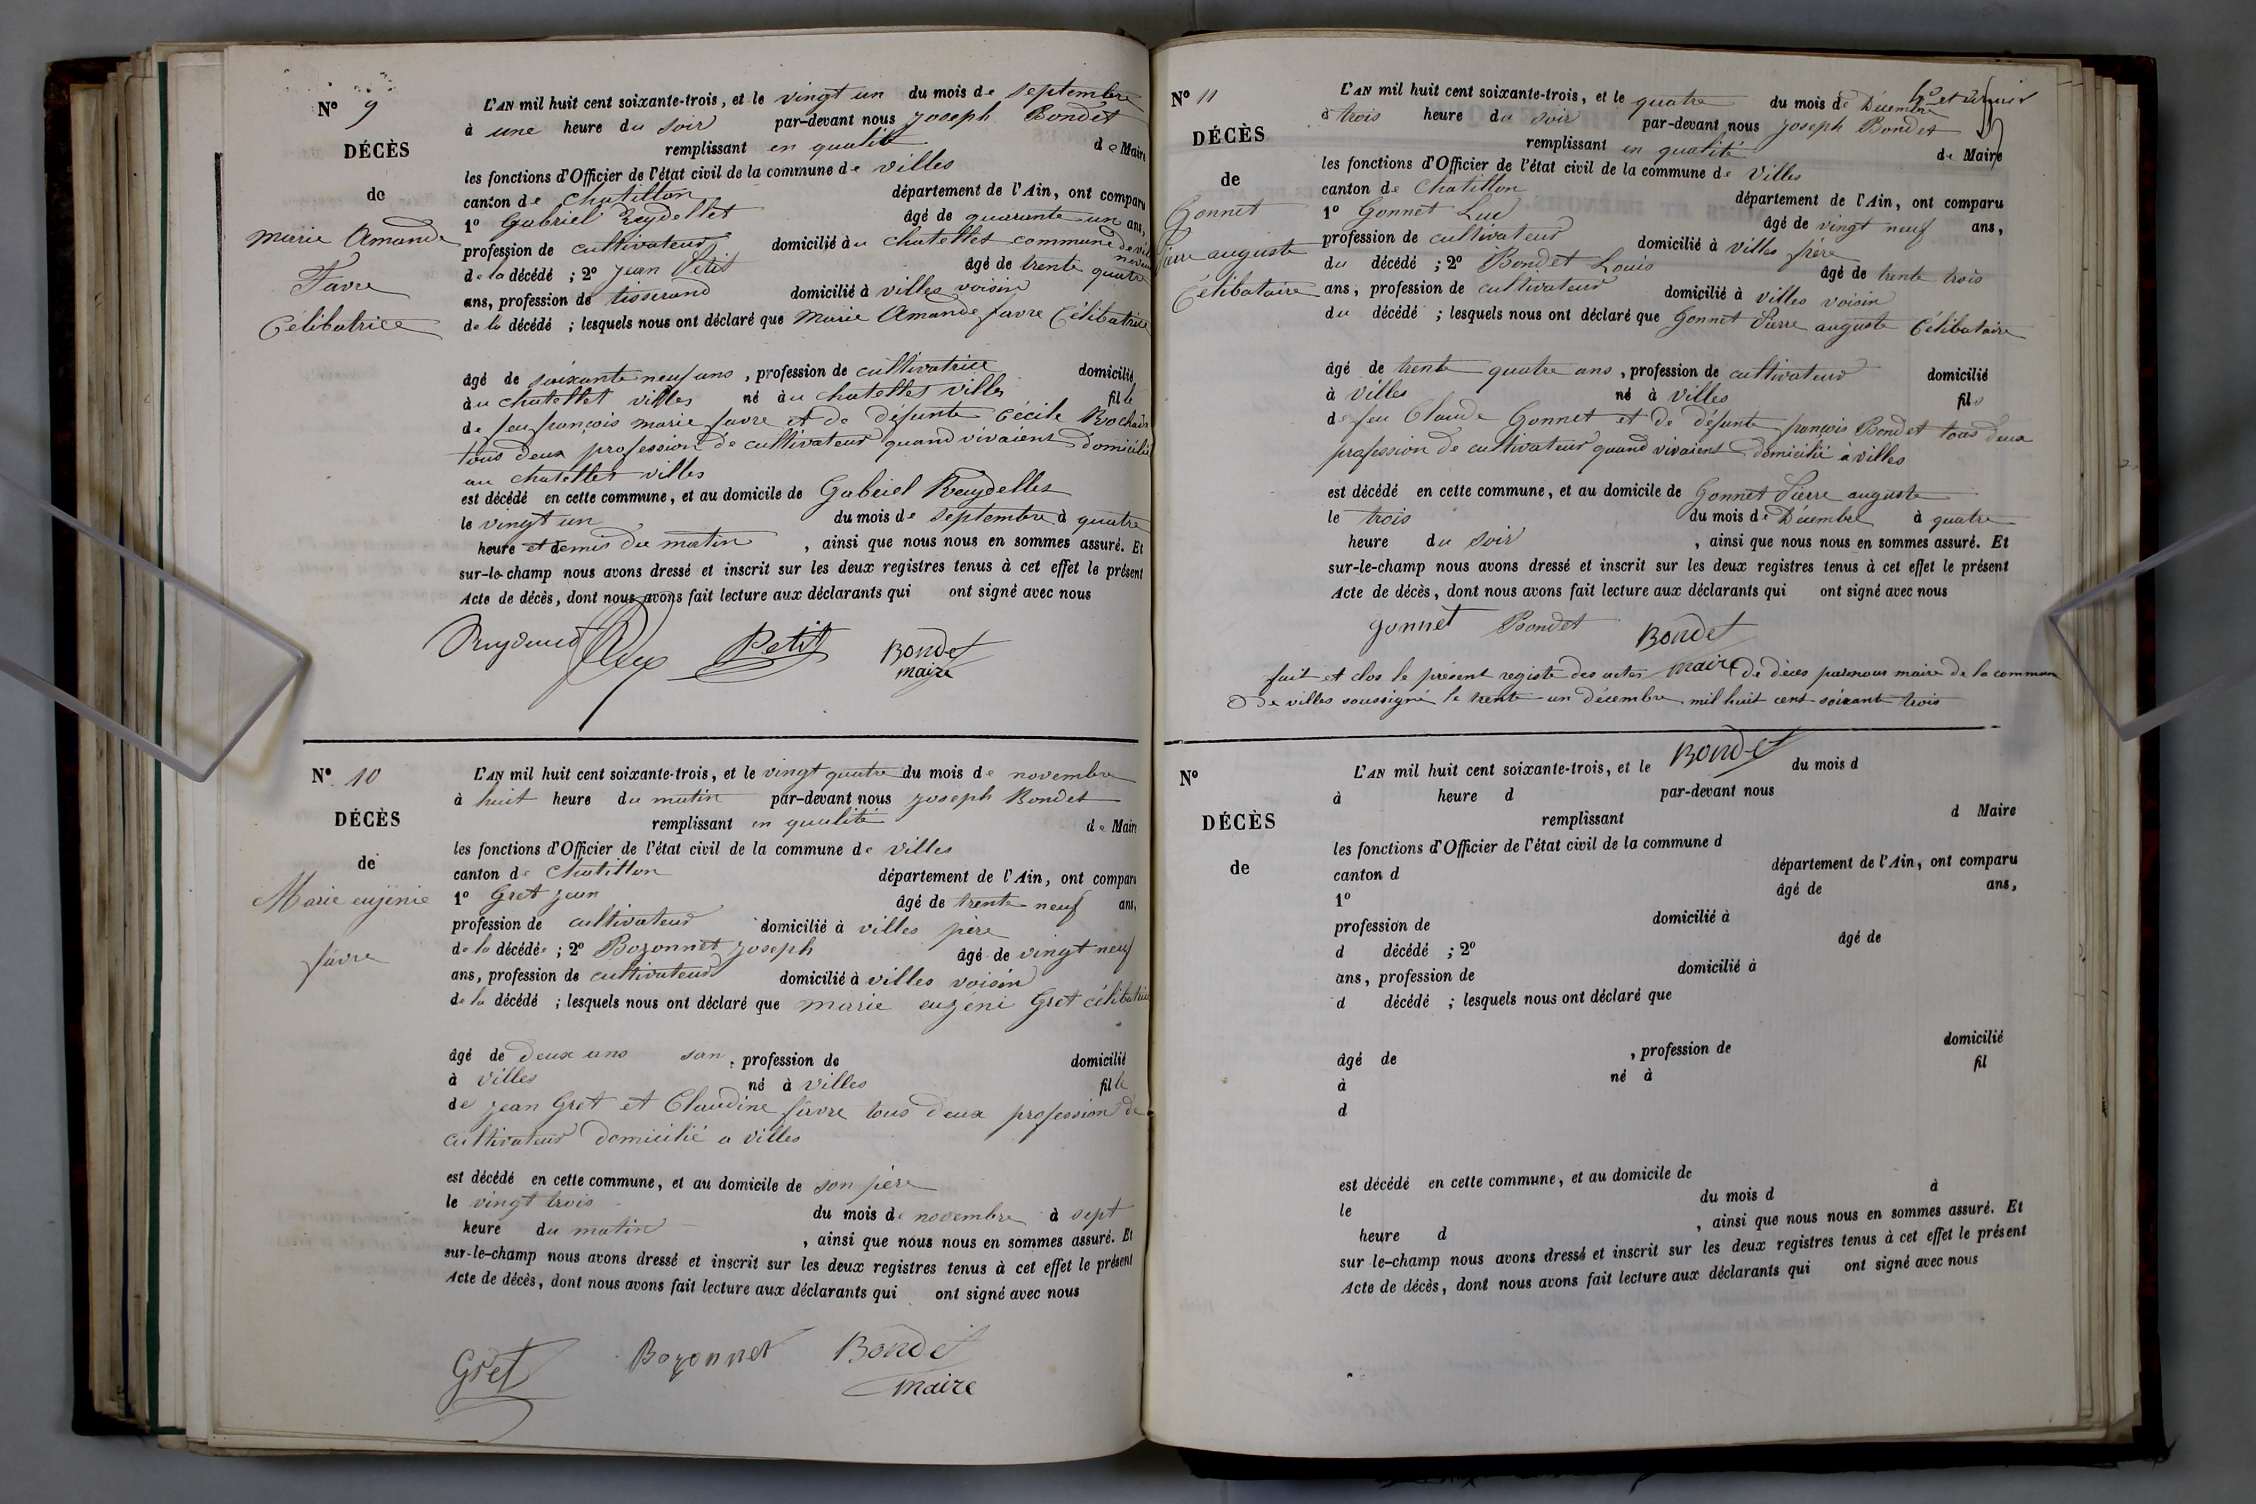 N° 9
DÉCÈS
de
Marie Amande
Favre
Célibatrice
L'AN mil huit cent soixante-trois, et le vingt un du mois de septembre
à une heure du soir par-devant nous joseph Bondet
remplissant en qualité de Maire
les fonctions d'Officier de l'état civil de la commune de villes
canton de Chatillon département de l'Ain, ont comparu
1° Gabriel Reydellet âgé de quarante un ans,
profession de cultivateur domicilié àu chatellet commune de vil
neveu
de la décédé ; 2° jean Petit âgé de trente quatre
ans, profession de tisserand domicilié à villes voisin
de la décédé ; lesquels nous ont déclaré que Marie Amande favre Célibatrice
âgé de soixante neuf ans , profession de cultivatrice domicilié
àu chatellet villes né àu chatellet villes fille
de feu françois marie favre et de défunte Cécile
tous deux profession de cultivateur quand vivaient domicilié
au chatellet villes
est décédé en cette commune, et au domicile de Gabriel Reydellet
le vingt un du mois de septembre à quatre
heure et demis du matin , ainsi que nous nous en sommes assuré. Et
sur-le-champ nous avons dressé et inscrit sur les deux registres tenus à cet effet le présent
Acte de décès, dont nous avons fait lecture aux déclarants qui ont signé avec nous
Petit Bondet
maire
N° 10
DÉCÈS
de
Marie eujénie
favre
L'AN mil huit cent soixante-trois, et le vingt quatre du mois de novembre
à huit heure du matin par-devant nous joseph Bondet
remplissant en qualité de Maire
les fonctions d'Officier de l'état civil de la commune de villes
canton de Chatillon département de l'Ain, ont comparu
1° Gret jean âgé de trente neuf ans,
profession de cultivateur domicilié à villes père
de la décédée ; 2° Bozonnet joseph âgé de vingt neuf
ans, profession de cultivateur domicilié à villes voisin
de la décédé ; lesquels nous ont déclaré que marie eugéni Gret célibatrice
âgé de deux ans san , profession de domicilié
à villes né à villes fille
de jean Gret et Claudine favre tous deux profession de
cultivateur domicilié a villes
est décédé en cette commune, et au domicile de son père
le vingt trois du mois de novembre à sept
heure du matin , ainsi que nous nous en sommes assuré. Et
sur-le-champ nous avons dressé et inscrit sur les deux registres tenus à cet effet le présent
Acte de décès, dont nous avons fait lecture aux déclarants qui ont signé avec nous
Gret Bozonnet Bondet
maire
N° 11
DÉCÈS
de
Gonnet
Pierre auguste
Célibataire
et dernier
L'AN mil huit cent soixante-trois, et le quatre du mois de Décembre
à trois heure du soir par-devant nous joseph Bondet
remplissant en qualité de Maire
les fonctions d'Officier de l'état civil de la commune de villes
canton de Chatillon département de l'Ain, ont comparu
1° Gonnet Luc âgé de vingt neuf ans,
profession de cultivateur domicilié à villes frère
du décédé ; 2° Bondet Louis âgé de trente trois
ans, profession de cultivateur domicilié à villes voisin
du décédé ; lesquels nous ont déclaré que Gonnet Pierre auguste Célibataire
âgé de trente quatre ans , profession de cultivateur domicilié
à villes né à villes fils
de feu Claude Gonnet et de défunte françois Bondet tous deux
profession de cultivateur quand vivaient domicilié à villes
est décédé en cette commune, et au domicile de Gonnet Pierre auguste
le trois du mois de Décembre à quatre
heure du soir , ainsi que nous nous en sommes assuré. Et
sur-le-champ nous avons dressé et inscrit sur les deux registres tenus à cet effet le présent
Acte de décès, dont nous avons fait lecture aux déclarants qui ont signé avec nous
gonnet Bondet Bondet
maire
fait et clos le présent registe des actes de décès par nous maire de la commune
De villes soussigné le trente-un décembre mil huit cent soixante trois
Bondet
N°
DÉCÈS
de
L'AN mil huit cent soixante-trois, et le du mois d
à heure d par-devant nous
remplissant d Maire
les fonctions d'Officier de l'état civil de la commune d
canton d département de l'Ain, ont comparu
1° âgé de ans,
profession de domicilié à
d décédé ; 2° âgé de
ans, profession de domicilié à
d décédé ; lesquels nous ont déclaré que
âgé de , profession de domicilié
à né à fil
d
est décédé en cette commune, et au domicile de
le du mois d à
heure d , ainsi que nous nous en sommes assuré. Et
sur le-champ nous avons dressé et inscrit sur les deux registres tenus à cet effet le présent
Acte de décès, dont nous avons fait lecture aux déclarants qui ont signé avec nous